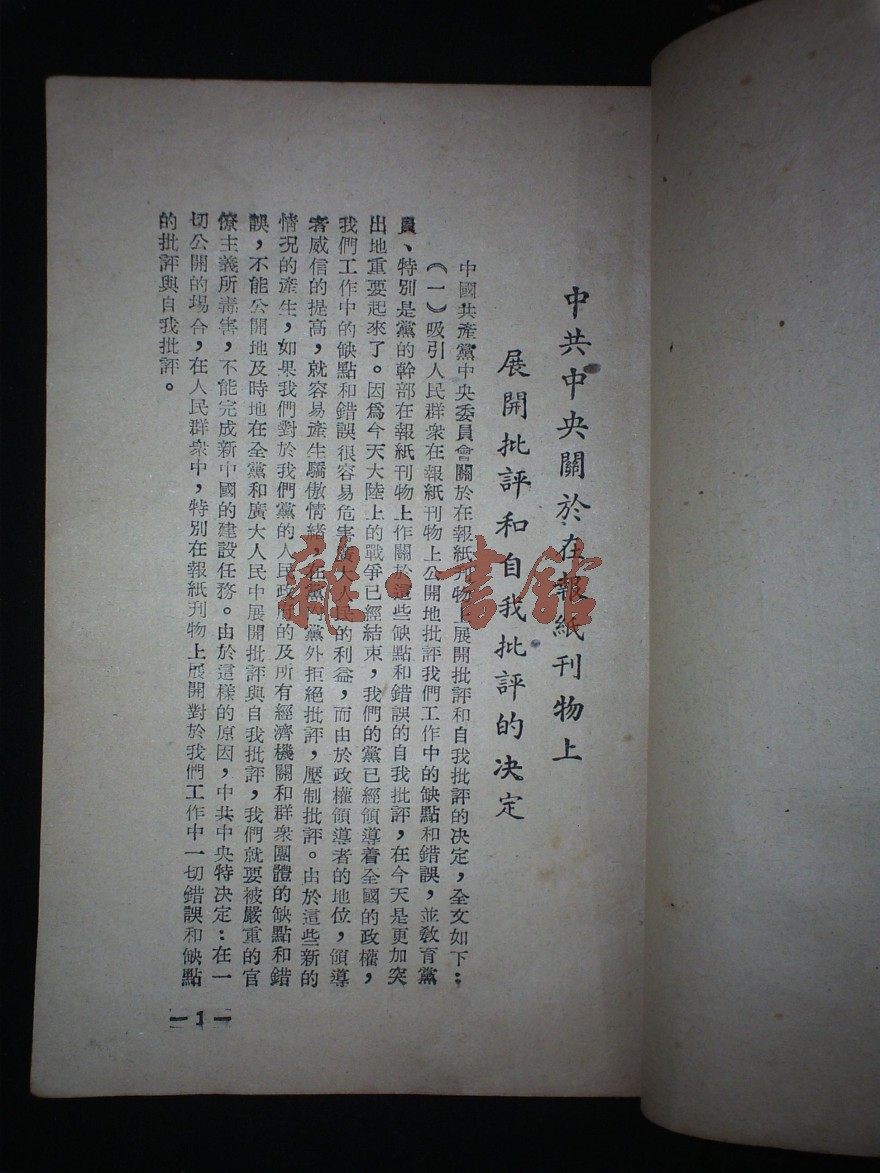 中共中央關於在報紙刊物上
展開批評和自我批評的决定
中國共產黨中央委員會關於在報紙刊物上展開批評和自我批評的决定，全文如下：
（一）吸引人民群衆在報紙刊物上公開地批評我們工作中的缺點和錯誤，並敎育黨
員、特別是黨的幹部在報紙刊物上作關於這些缺點和錯誤的自我批評，在今天是更加突
出地重要起來了。因爲今天大陸上的戰爭已經結束，我們的黨已經領導着全國的政權，
我們工作中的缺點和錯誤很容易危害廣大人民的利益，而由於政權領導者的地位，領導
者威信的提高，就容易產生驕傲情緒，在黨內黨外拒絕批評，壓制批評。由於這些新的
情况的產生，如果我們對於我們黨的人民政府的及所有經濟機關和群衆團體的缺點和錯
誤，不能公開地及時地在全黨和廣大人民中展開批評與自我批評，我們就要被嚴重的官
僚主義所毒害，不能完成新中國的建設任務。由於這樣的原因，中共中央特决定：在一
切公開的場合，在人民群衆中，特別在報紙刊物上展開對於我們工作中一切錯誤和缺點
的批評與自我批評。
— 1 —
雜·書館